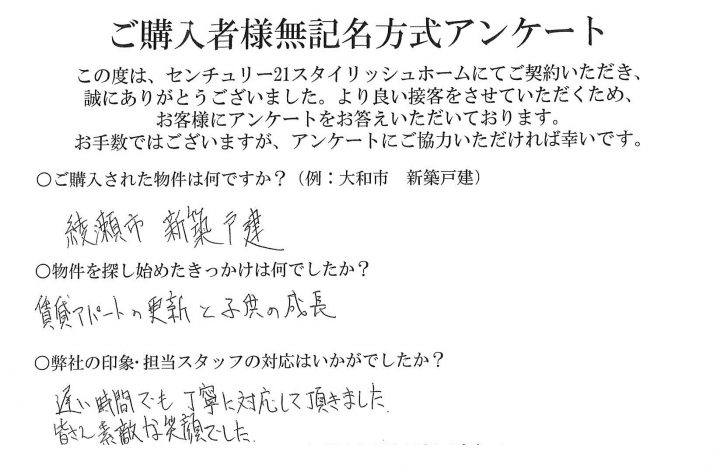 ご購入者様無記名方式アンケート
この度は、センチュリー21スタイリッシュホームにてご契約いただき、
誠にありがとうございました。より良い接客をさせていただくため、
お客様にアンケートをお答えいただいております。
お手数ではございますが、アンケートにご協力いただければ幸いです。
〇ご購入された物件は何ですか？（例：大和市　新築戸建）
綾瀬市 新築戸建
〇物件を探し始めたきっかけは何でしたか？
賃貸アパートの更新と子供の成長
〇弊社の印象・担当スタッフの対応はいかがでしたか？
遅い時間でも丁寧に対応して頂きました.
皆さん素敵な笑顔でした.